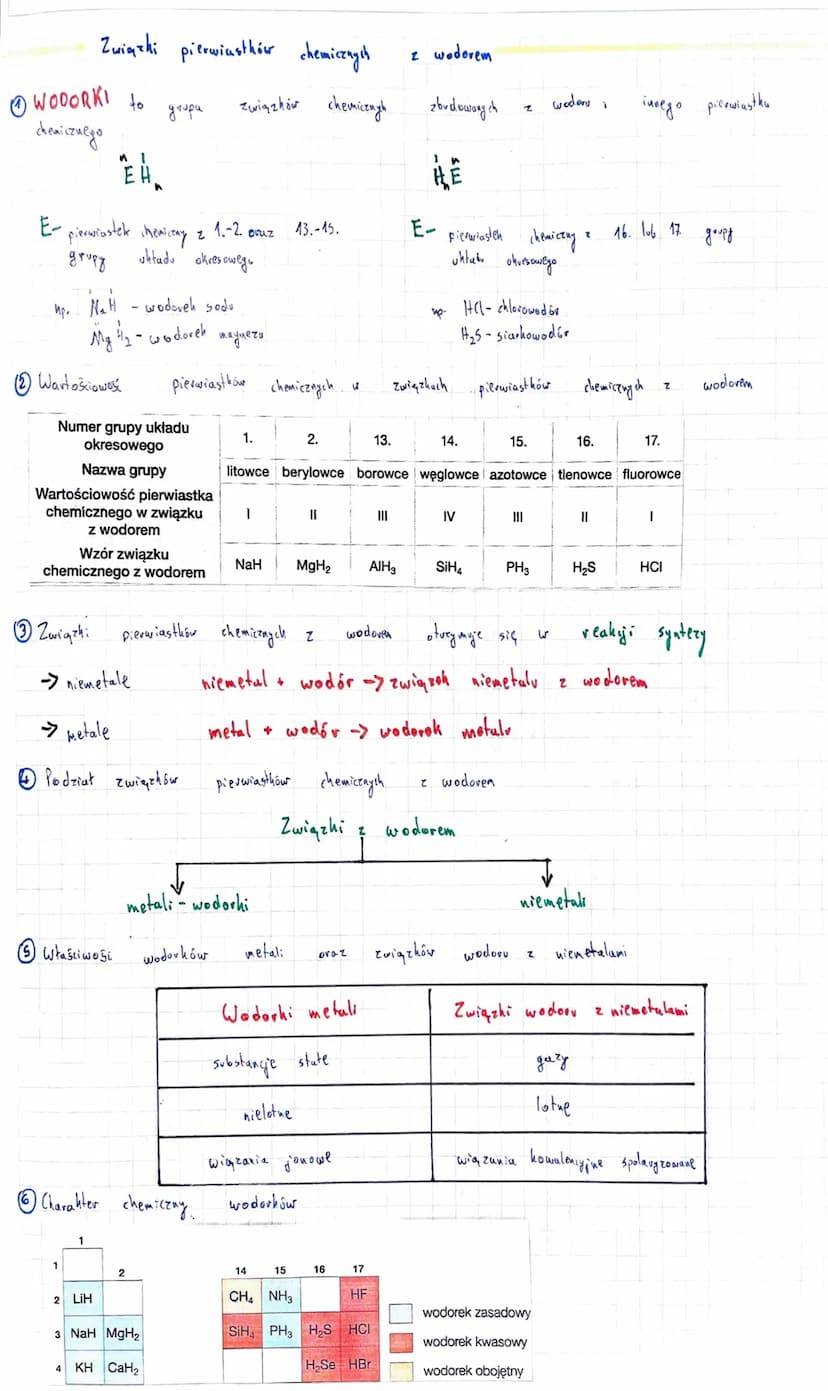 Związki pierwiastków chemicznych z wodorem
① WODORKI to grupa związków chemicznych zbudowanych z wodoru i innego pierwiastka
chemicznego
n I
E Hₙ
I n
HₙE
E- pierwiastek chemiczny z 1.-2. oraz 13.-15.
grupy układu okresowego
np. NaH - wodorek sodu
MgH₂ - wodorek magnezu
E- pierwiastek chemiczny z 16. lub 17 grupy
układu okresowego
np. HCl - chlorowodór
H₂S - siarkowodór
② Wartościowość pierwiastków chemicznych w związkach pierwiastków chemicznych z wodorem
Numer grupy układu okresowego 1. 2. 13. 14. 15. 16. 17.
Nazwa grupy litowce berylowce borowce węglowce azotowce tlenowce fluorowce
Wartościowość pierwiastka chemicznego w związku z wodorem I II III IV III II I
Wzór związku chemicznego z wodorem NaH MgH₂ AlH₃ SiH₄ PH₃ H₂S HCl
③ Związki pierwiastków chemicznych z wodorem otrzymuje się w reakcji syntezy
→ niemetale niemetal + wodór → związek niemetalu z wodorem
→ metale metal + wodór → wodorek metalu
④ Podział związków pierwiastków chemicznych z wodorem
Związki z wodorem
metali - wodorki niemetali
⑤ Właściwości wodorków metali oraz związków wodoru z niemetalami
Wodorki metali Związki wodoru z niemetalami
substancje stałe gazy
nielotne lotne
wiązania jonowe wiązania kowalencyjne spolaryzowane
⑥ Charakter chemiczny wodorków
1
1 2 14 15 16 17
2 LiH CH₄ NH₃ HF
3 NaH MgH₂ SiH₄ PH₃ H₂S HCl
4 KH CaH₂ H₂Se HBr
wodorek zasadowy
wodorek kwasowy
wodorek obojętny